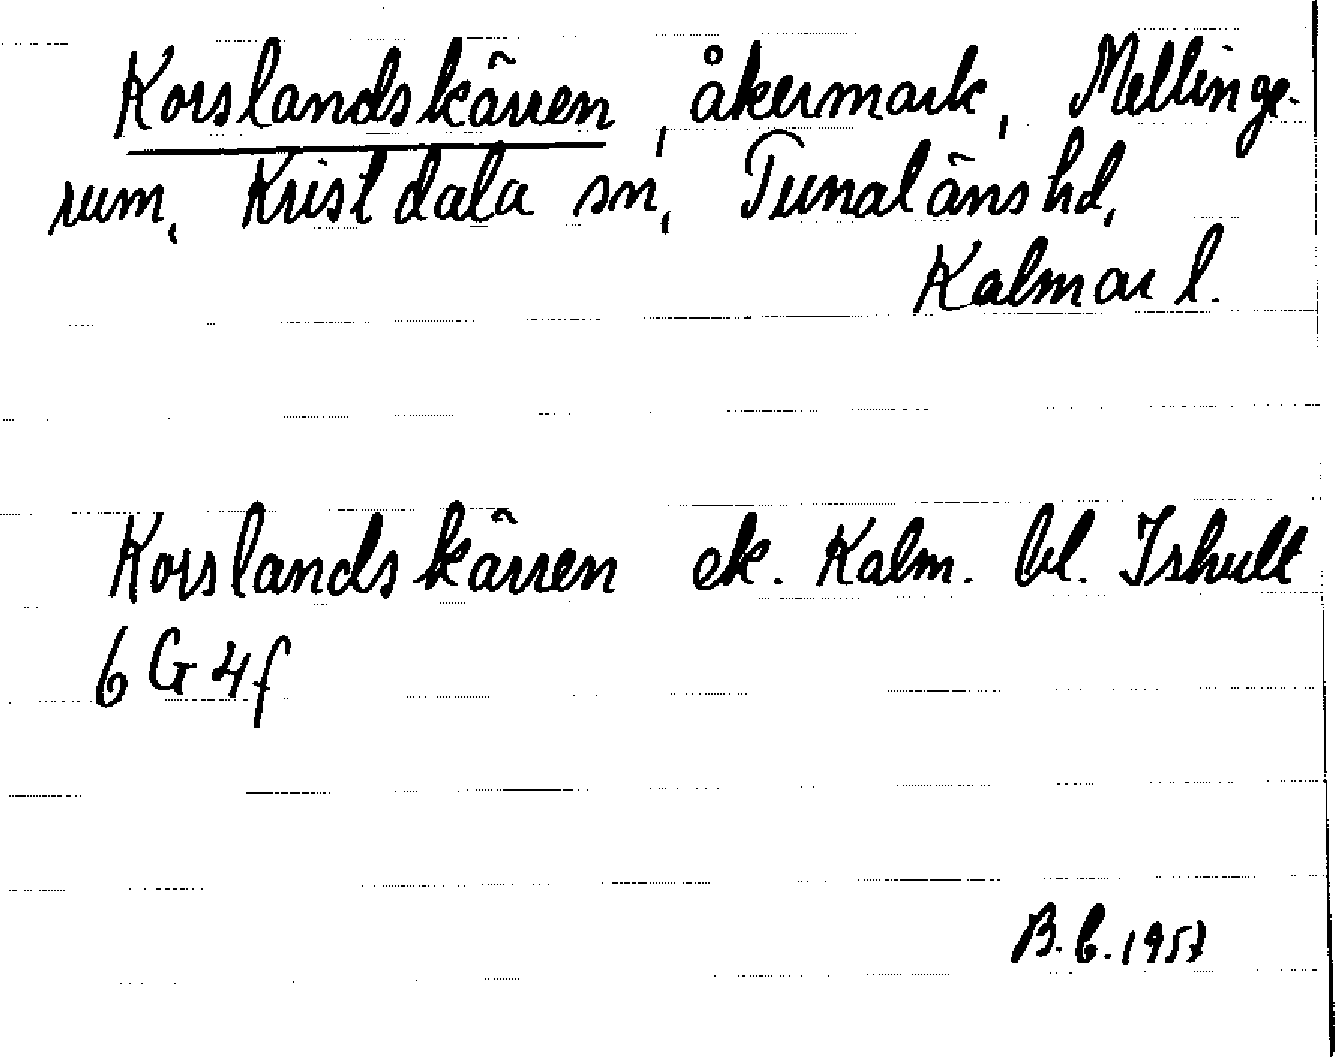 Korslandskärren, åkermark, Mellinge-
rum, Kristdala sn, Tunaläns hd,
Kalmar l.
Korslandskärren ek. Kalm. bl. Ishult
6 G 4f
B.b. 1957